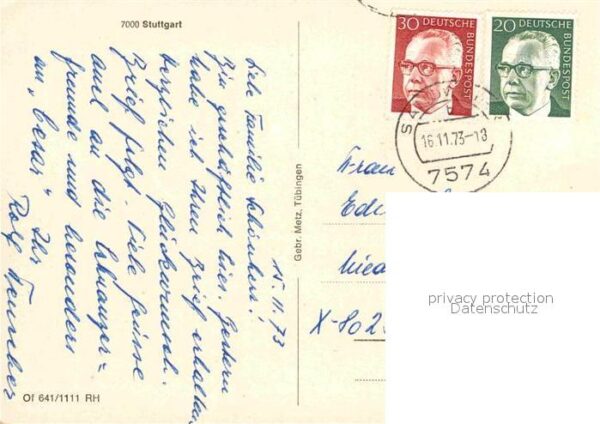 7000 Stuttgart
15.11.73
Liebe Familie Schönherr!
Bin geschäftlich hier. Gestern
habe ich Ihren Brief erhalten
herzlichen Glückwunsch.
Brief folgt. Viele Grüsse
auch an die
freunde und besonders
an "Cesar" Ihr
Rolf
Of 641/1111 RH
Gebr. Metz, Tübingen
30 DEUTSCHE BUNDESPOST
20 DEUTSCHE BUNDESPOST
16.11.73-18
7574
Frau
X-802
privacy protection
Datenschutz